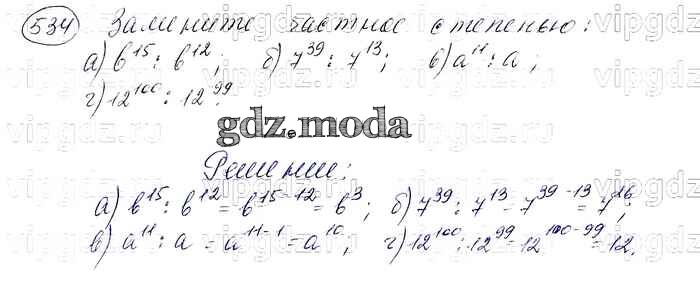 534 Замените частное степенью:
а) b¹⁵ : b¹²; б) 7³⁹ : 7¹³; в) a¹¹ : a;
г) 12¹⁰⁰ : 12⁹⁹.
gdz.moda
Решение:
а) b¹⁵ : b¹² = b¹⁵⁻¹² = b³; б) 7³⁹ : 7¹³ = 7³⁹⁻¹³ = 7²⁶;
в) a¹¹ : a = a¹¹⁻¹ = a¹⁰; г) 12¹⁰⁰ : 12⁹⁹ = 12¹⁰⁰⁻⁹⁹ = 12.